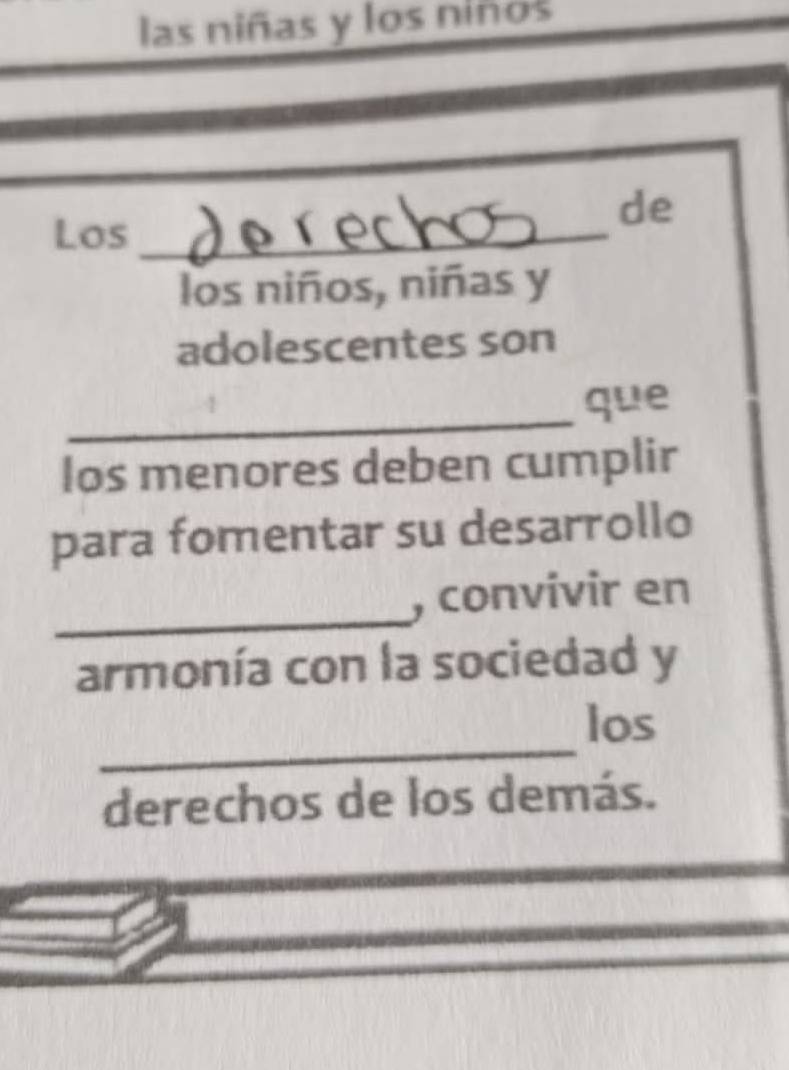 las niñas y los niños
Los derechos de
los niños, niñas y
adolescentes son
que
los menores deben cumplir
para fomentar su desarrollo
, convivir en
armonía con la sociedad y
los
derechos de los demás.